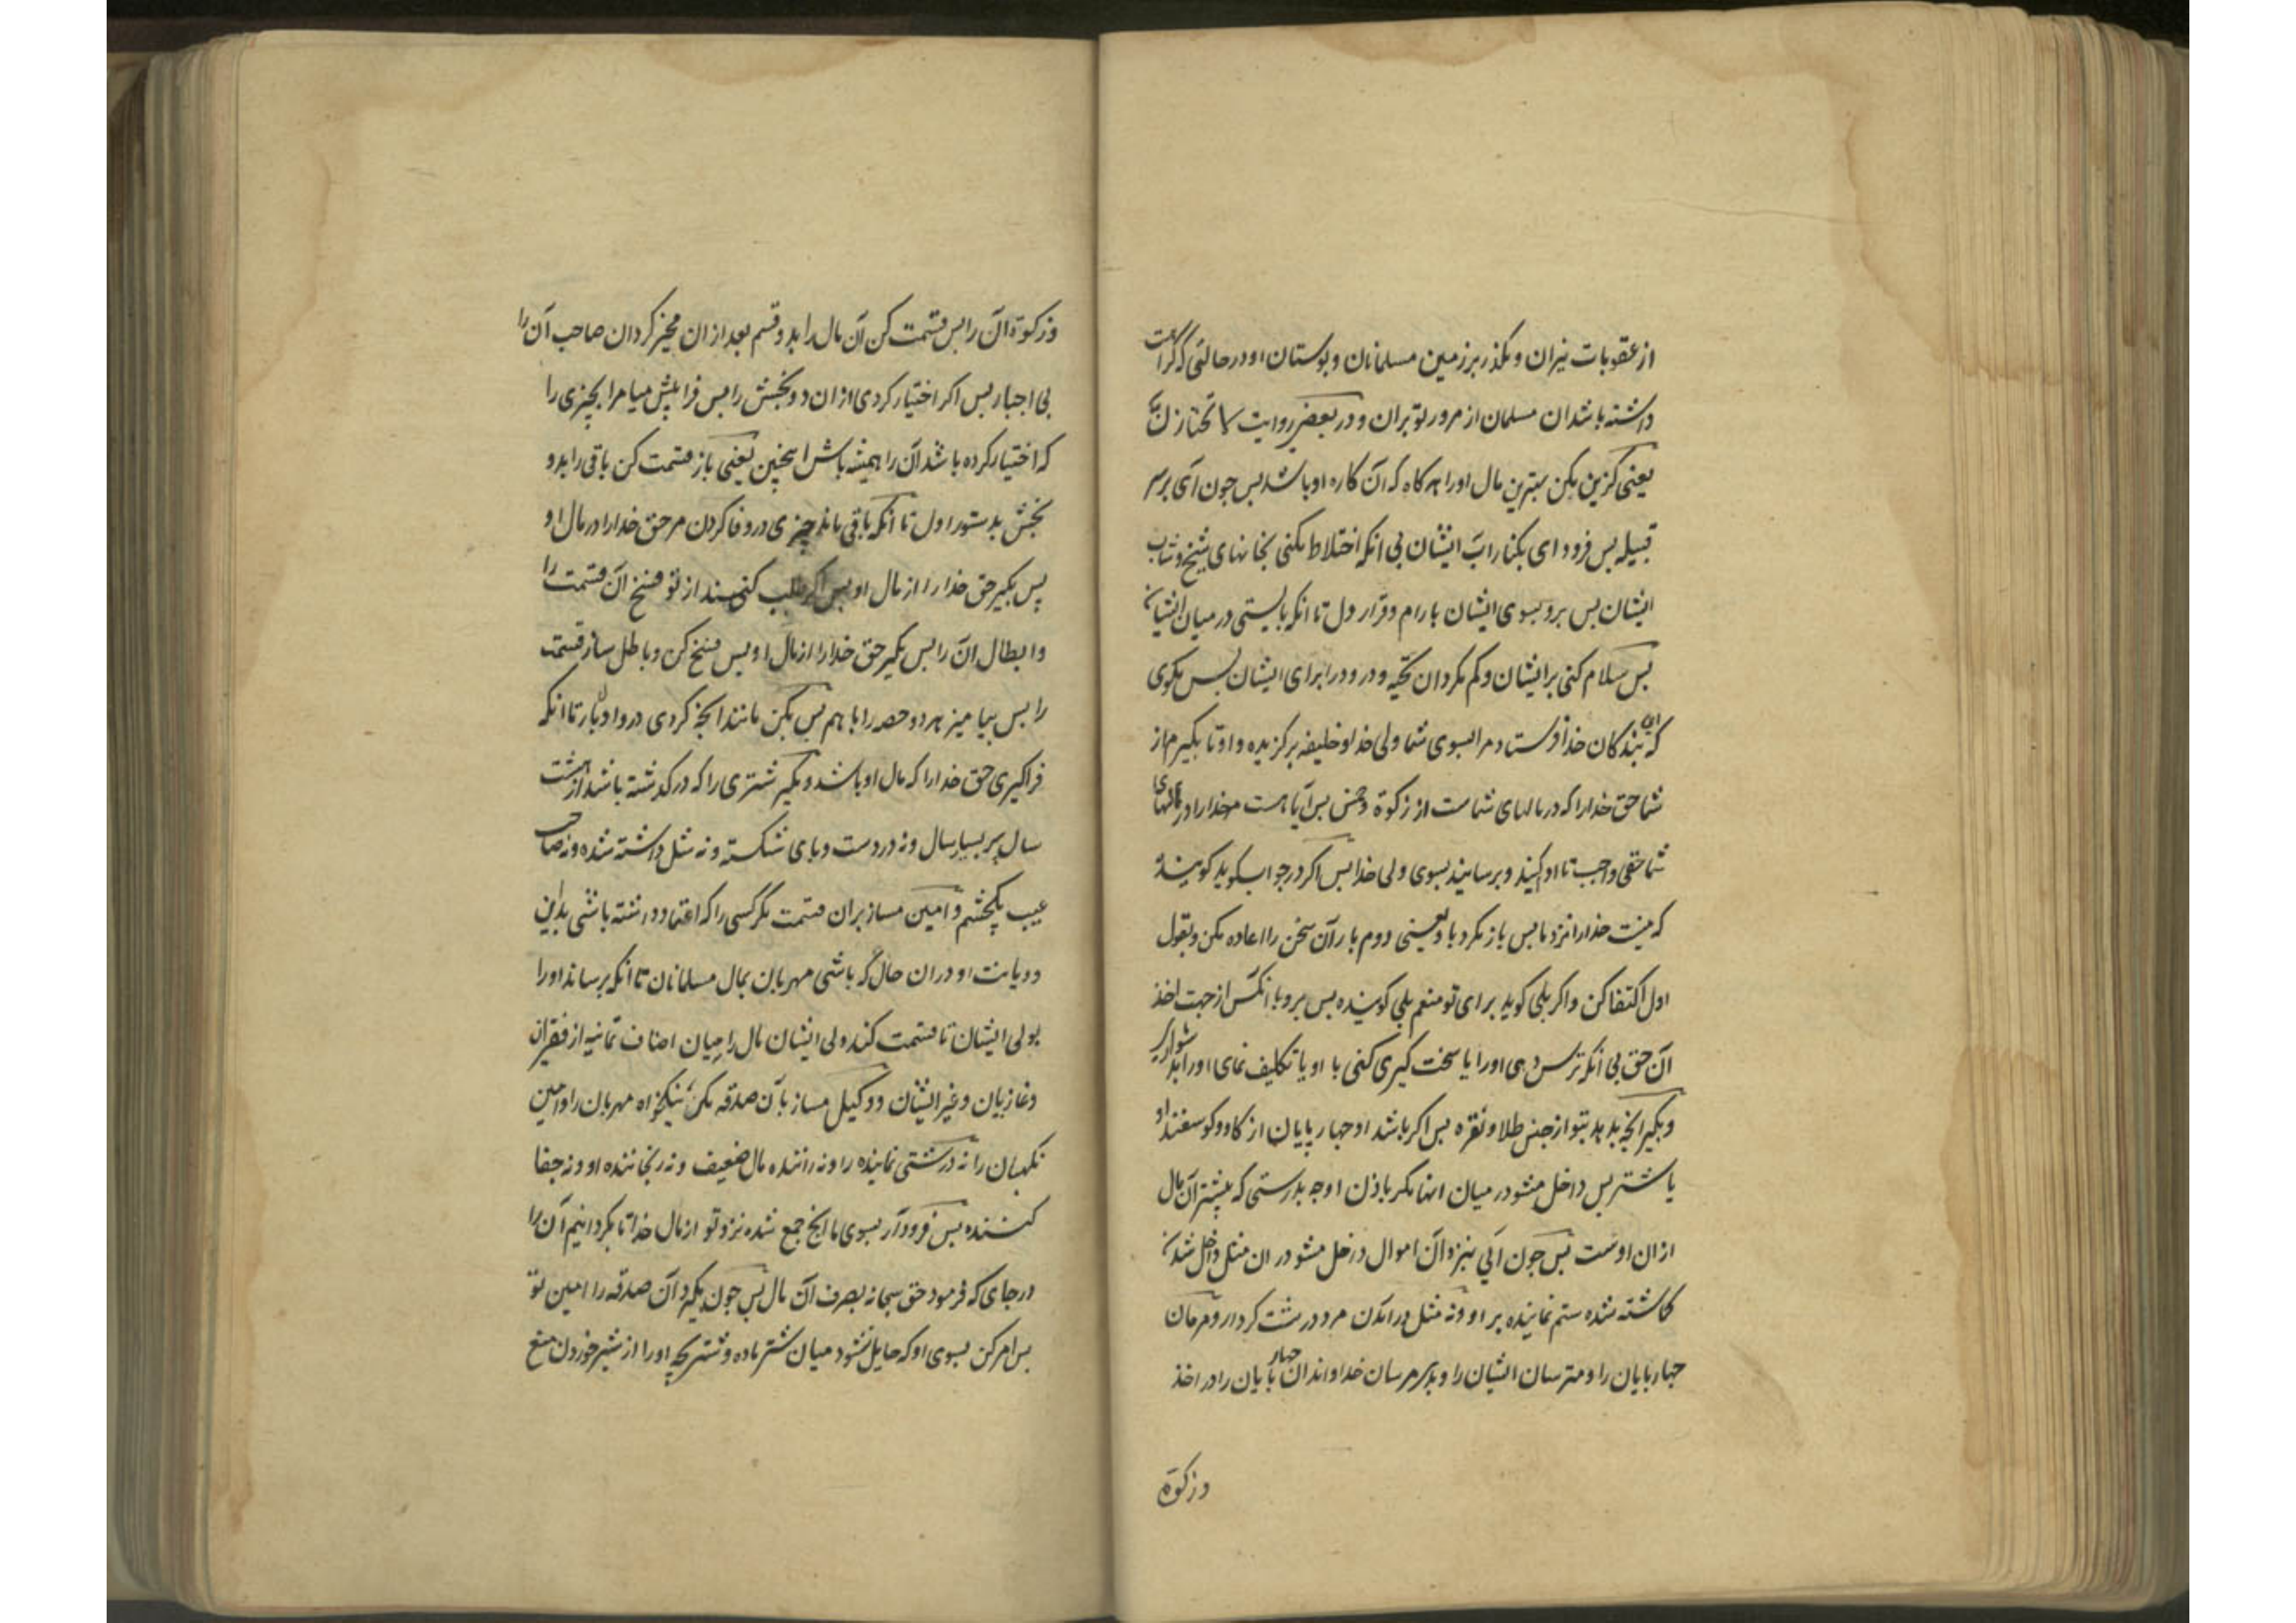 از عقوبات نیران و مگذر بر زمین مسلمانان و بوستان او در حالتی که کراهت
داشته باشد ان مسلمان از مرور تو بران و در بعضی روایت لا تختارن
یعنی گزین مکن بهترین مال او را هر گاه که آن کاره او باشد پس چون آی بر سر
قبیله پس فرود ای بکنار اب ایشان بی انکه اختلاط بکنی بخانهای شیخ و شاب
ایشان پس برو بسوی ایشان بارام و قرار دل تا انکه بایستی در میان ایشان
پس سلام کنی بر ایشان و کم مکردان تحیه و درود را برای ایشان پس بکوی
که ای بندکان خدا فرستاد مرا بسوی شما ولی خدا و خلیفه برگزیده او تا بگیرم از
شما حق خدا را که در مالهای شماست از زکوة و خمس پس آیا هست مر خدا را در مالهای
شما حقی واجب تا ادا کنید و برسانید بسوی ولی خدا پس اکر در جواب بکوید کوینده
که نیست خدا را نزد ما پس باز مکرد باو یعنی دوم بار آن سخن را اعاده مکن و بقول
اول اکتفا کن و اکر بلی کوید برای تو منعم بلی کوینده پس برو با انکس از جهت اخذ
آن حق بی انکه ترس دهی او را یا سخت گیری کنی با او یا تکلیف نمای او را بدشواری
و بگیر انچه بدهد بتو از جنس طلا و نقره پس اکر باشد او چهار پایان از کاو و کوسفند او
یا شتر پس داخل مشو در میان انها مکر باذن او چه بدرستی که بیشتر آن مال
از ان اوست پس چون آیی بنزد آن اموال داخل مشو در ان مثل داخل شدن
کماشته شده ستم نماینده بر او و نه مثل در امدن مرد درشت کردار و مرمان
چهار پایان را و مترسان ایشان را و بد مرسان خداوندان چهار پایان را در اخذ
و زکوة
و زکوة آن را پس قسمت کن آن مال را بدو قسم بعد از ان مخیر کردان صاحب آن را
بی اجبار پس اکر اختیار کردی از ان دو بخش را پس فرا پیش میا مر انچیزی را
که اختیار کرده باشد آن را همیشه باش اینچنین یعنی باز قسمت کن باقی را بدو
بخش بدستور اول تا انکه باقی ماند چیزی در وفا کردن مر حق خدا را در مال او
پس بگیر حق خدا را از مال او پس اکر طلب کنند از تو فسخ آن قسمت را
و ابطال آن را پس بگیر حق خدا را از مال او پس فسخ کن و باطل ساز قسمت
را پس بیامیز هر دو حصه را با هم پس بکن مانند انچه کردی در و اول بار تا انکه
فراگیری حق خدا را که مال او باشد و مگیر شتری را که در گذشته باشد از هشت
سال پیر بسیار سال و نه در دست و پای شکسته و نه شل داشته شده و نه صاحب
عیب یکچشم و امین مساز بران قسمت مگر کسی را که اعتماد داشته باشی بدین
و دیانت او در ان حال که باشی مهربان بمال مسلمانان تا انکه برساند او را
بولی ایشان تا قسمت کند ولی ایشان مال را میان اصناف ثمانیه از فقیران
و غازیان و غیر ایشان و وکیل مساز بآن صدقه مکر نیکخواه مهربان را و امین
نگهبان را نه درشتی نماینده را و نه راننده مال ضعیف و نه رنجاننده او و نه جفا
کننده پس فرود آر بسوی ما انچه جمع شده نزد تو از مال خدا تا بگردانیم آن را
در جای که فرمود حق سبحانه بصرف آن مال پس چون بگیرد آن صدقه را امین تو
پس امر کن بسوی او که حایل نشود میان شتر ماده و شتر بچه او را از شیر خوردن منع